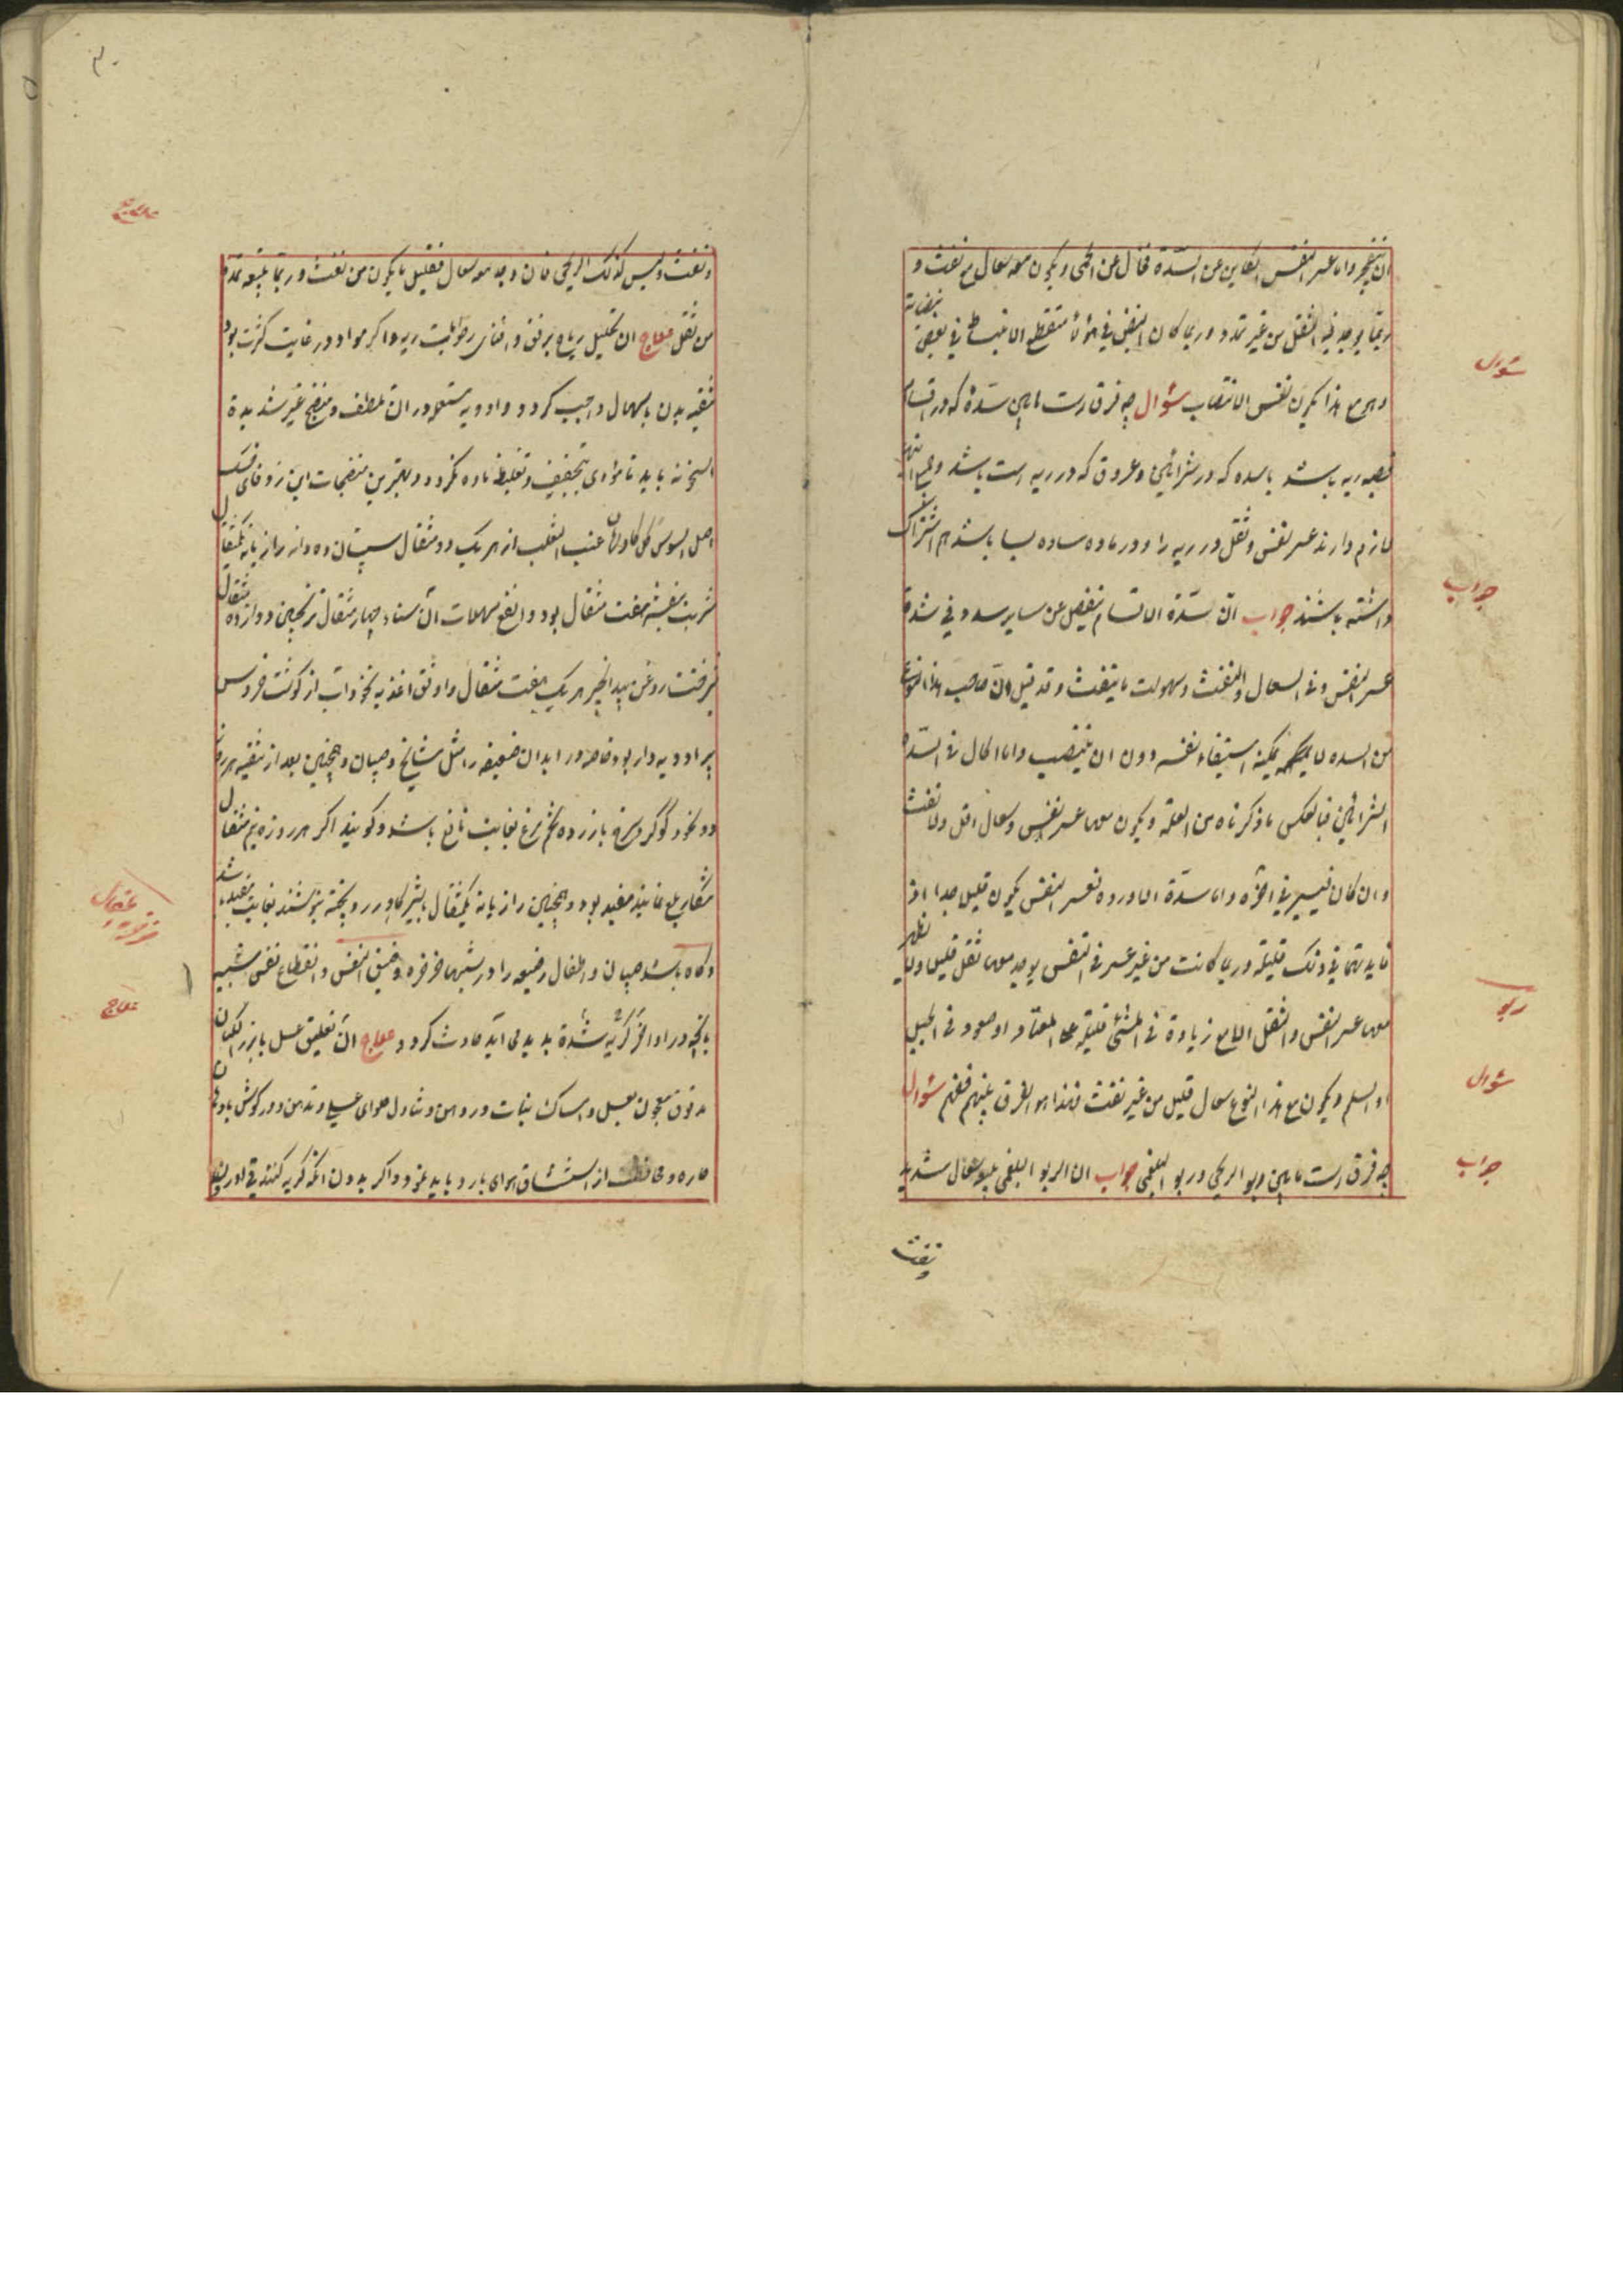 ان ینفجر واما عسر النفس الکاین عن السدة فخال عن الحمی ویکون معه سعال مع نفث و
ربما یوجد فیه الثقل من غیر تمدد وربما کان النبض فی هؤلاء منقطع الانبساط فی بعض نبضاته
ومع هذا یکون نفس الانتصاب سؤال چه فرق است مابین سدۀ که در اقسام
قصبه ریه باشد با سده که در شرائین و عروق که در ریه است باشد و
لازم دارند عسر نفس و ثقل در ریه را و در ماده ساده بسا باشد هم اشتراک
داشته باشند جواب ان سدة الاقسام ینفصل عن سایر سدد فی شدة
عسر النفس وفی السعال والنفث وسهولت ما ینفث وقد قیل ان صاحب هذا النوع
من السده لا یمکنه استیفاء نفسه دون ان ینتصب واما الحال فی السدة
الشرائین فبالعکس ما ذکرناه من العلة ویکون معها عسر نفس وسعال اقل ولا نفث
وان کان فیسیر فی اخره واما سدة الاورده فعسر النفس یکون قلیل جدا اذ
فایدتها فی ذلک قلیلة وربما کانت من غیر عسر فی النفس یوجد معها ثقل قلیل ولا یظهر
معها عسر النفس والثقل الا مع زیادة فی المشی قلیلة علی المعتاد او صعود فی الجبل
او السلم ویکون مع هذا النوع سعال قلیل من غیر نفث فهذا هو الفرق بینهم فافهم سؤال
چه فرق است مابین ربو الریحی و ربو البلغمی جواب ان الربو البلغمی یتبعه سعال شدید
ونفث
سؤال
جواب
ربو
سؤال
جواب
ونفث ولیس کذلک الریحی فان وجد معه سعال فقلیل ما یکون من نفث وربما یتبعه تمدد
من ثقل علاج ان تحلیل ریاح برفق و افنای رطوبت ریه و اگر مواد در غایت کثرت بود
تنقیه بدن باسهال واجب کردد و ادویه مستعمله در ان ملطف و منضج غیر شدیدة
السخونه باید تا مؤدی بتجفیف و تغلیظ ماده نکردد و بهترین منضجات این زوفای خشک
اصل السوس کل کاوزبان عنب الثعلب از هر یک دو مثقال سپستان ده دانه رازیانه یکمثقال
شربت بنفشه هفت مثقال بود و انفع مسهلات آن سناء چهار مثقال ترنجبین دوازده مثقال
شیرخشت روغن بید انجیر هر یک هفت مثقال و اوفق اغذیه نخوداب از کوشت خروس
پیر ادویه دار بود خاصه در ابدان ضعیفه را مثل مشایخ و صبیان و همچنین بعد از تنقیه هر روز
دو نخود کوکرد سرخ با زرده تخم مرغ بغایت نافع باشد و کویند اکر هر روزه نیم مثقال
مفید بود و همچنین رازیانه یکمثقال بشیر کاو زرد پخته بنوشند بغایت مفید باشد
و کاه باشد صبیان و اطفال رضیعه را در شبها خرخره و ضیق النفس و انقطاع نفس شبیه
بانچه در اواخر کریه شده پدید می آید حادث کردد علاج ان تعلیق عسل با بزر الکتان
مدقوق معجون بعسل و امساک نبات در دهن و تناول حلوای عسلی و تدهین در کوش بادهان
حاره و محافظت از استنشاق هوای بارد باید نمود و اکر بدون انکه کریه کنند
علاج
علاج